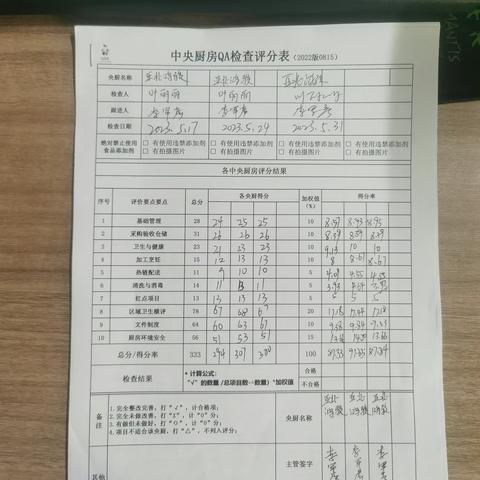 中央厨房QA检查评分表（2022版0815）
央厨名称
检查人 叶丽丽 叶丽丽
跟进人
检查日期 2023.5.17 2023.5.24 2023.5.31
绝对禁止使用食品添加剂 □ 有使用违禁添加剂 □ 有使用违禁添加剂 □ 有使用违禁添加剂
□ 有拍摄图片 □ 有拍摄图片 □ 有拍摄图片
各中央厨房评分结果
序号 评价要点要点 总分 各央厨得分 加权值(%) 得分率
1 基础管理 28 24 25 25 10 8.57 8.93 8.93
2 采购验收仓储 31 26 26 26 10 8.39 8.39 8.39
3 卫生与健康 23 21 23 23 10 9.13 10 10
4 加工烹饪 15 12 13 13 10 8 8.67 8.67
5 热链配送 11 9 10 10 5 4.09 4.55 4.55
6 清洗与消毒 14 11 13 11 5 3.93 4.64 3.93
7 红点项目 13 13 13 13 5 5 5 5
8 区域卫生横评 78 67 68 67 20
9 文件制度 64 60 63 61 10 9.38 9.84 9.53
10 厨房环境安全 56 51 53 51 15
总分/得分率 333 294 307 300 100
检查结果 * 计算公式:
"√"的数量/总项目数一数量）*加权值
合格
不合格
备注
1. 完全整改完善，打"√"，计合格项；
2. 完全未做改善，打"X"，计"0"分；
3. 有做但未做好，打"O"，计"0"分；
4. 项目不适合该央厨，打"△"，不列入评分；
央厨名称
主管签字
其他